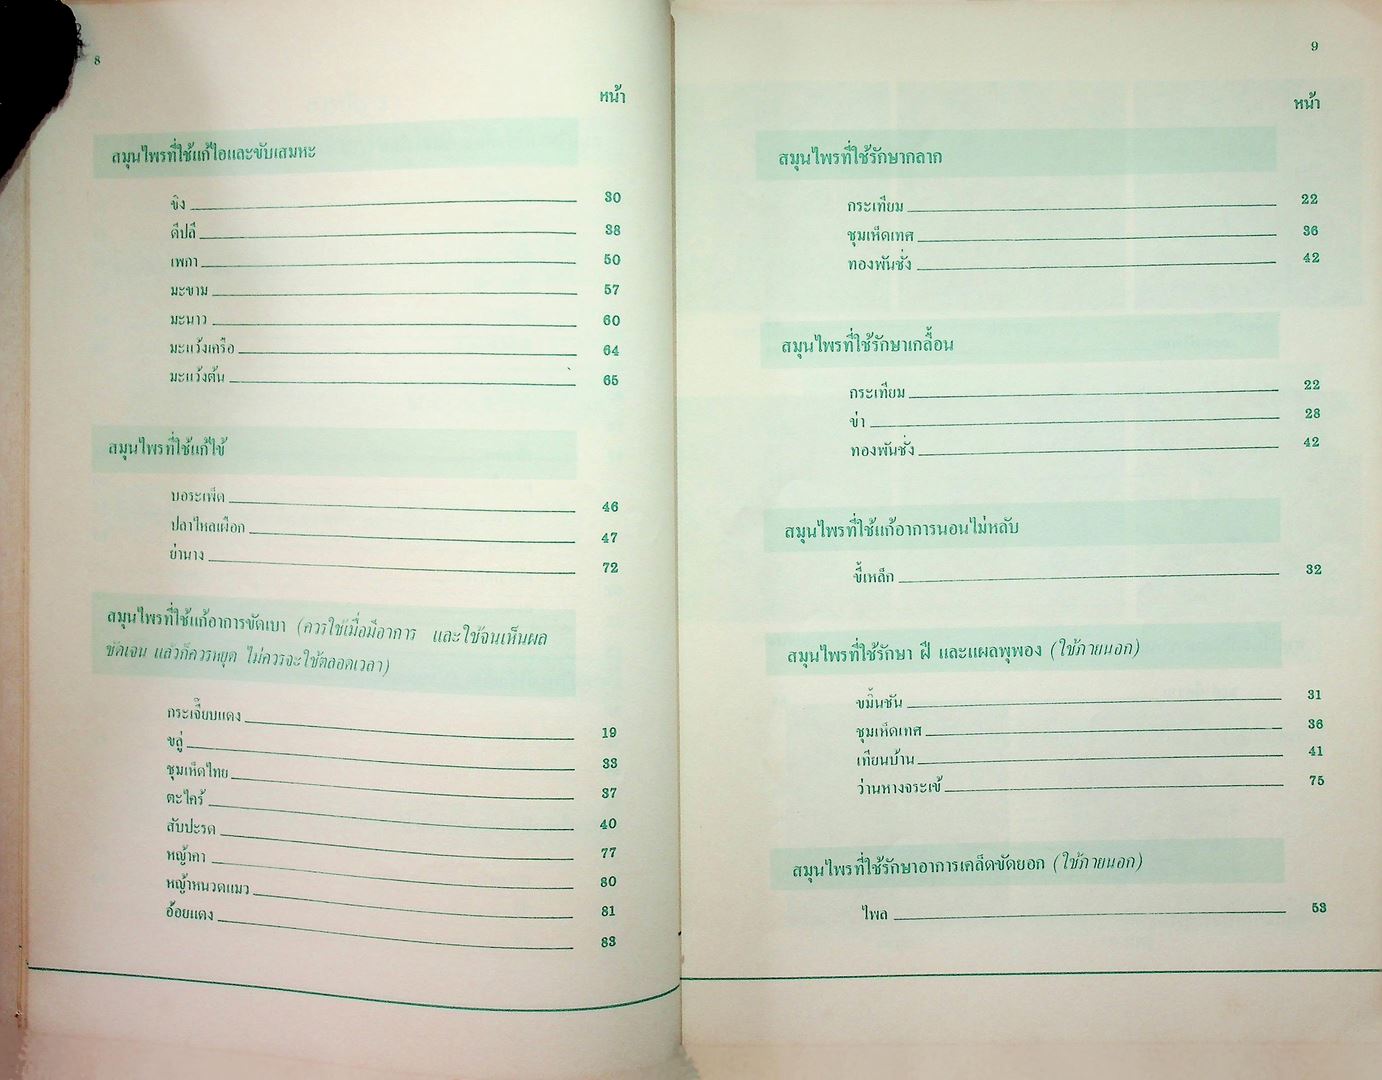 8
หน้า
สมุนไพรที่ใช้แก้ไอและขับเสมหะ
ขิง 30
ดีปลี 38
เพกา 50
มะขาม 57
มะนาว 60
มะแว้งเครือ 64
มะแว้งต้น 65
สมุนไพรที่ใช้แก้ไข้
บอระเพ็ด 46
ปลาไหลเผือก 47
ย่านาง 72
สมุนไพรที่ใช้แก้อาการขัดเบา (ควรใช้เมื่อมีอาการ และใช้จนเห็นผล
ชัดเจน แล้วก็ควรหยุด ไม่ควรจะใช้ตลอดเวลา)
กระเจี๊ยบแดง 19
ขลู่ 33
ชุมเห็ดไทย 37
ตะไคร้ 40
สับปะรด 77
หญ้าคา 80
หญ้าหนวดแมว 81
อ้อยแดง 83
9
หน้า
สมุนไพรที่ใช้รักษากลาก
กระเทียม 22
ชุมเห็ดเทศ 36
ทองพันชั่ง 42
สมุนไพรที่ใช้รักษาเกลื้อน
กระเทียม 22
ข่า 28
ทองพันชั่ง 42
สมุนไพรที่ใช้แก้อาการนอนไม่หลับ
ขี้เหล็ก 32
สมุนไพรที่ใช้รักษา ฝี และแผลพุพอง (ใช้ภายนอก)
ขมิ้นชัน 31
ชุมเห็ดเทศ 36
เทียนบ้าน 41
ว่านหางจระเข้ 75
สมุนไพรที่ใช้รักษาอาการเคล็ดขัดยอก (ใช้ภายนอก)
ไพล 53